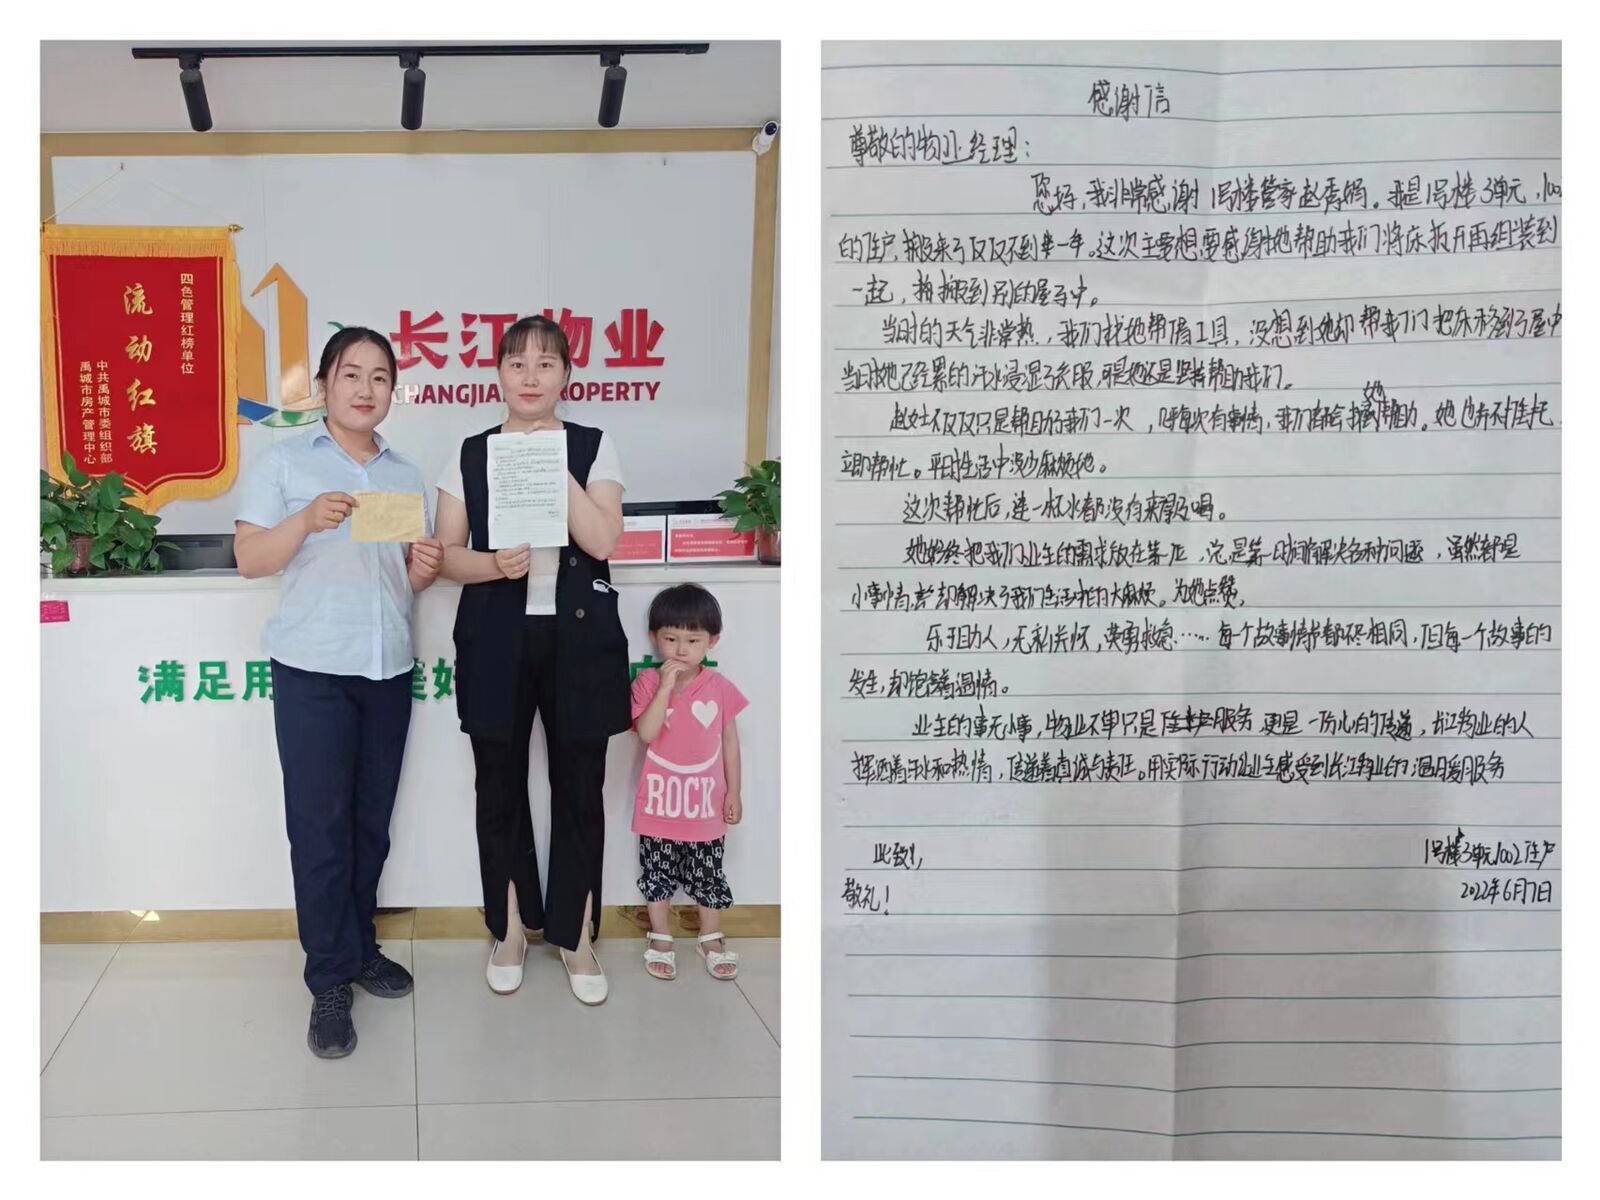 四色管理红榜单位
流动红旗
中共禹城市委组织部
禹城市房产管理中心
长江物业
CHANGJIAN
ROPERTY
满足用
美好
ROCK
感谢信
尊敬的物业经理：
您好，我非常感谢1号楼管家赵秀娟。我是1号楼3单元，100
的住户，搬来了仅仅不到半一年。这次主要想要感谢她帮助我们将床拆开再组装到
一起，搬到别的屋子中。
当时的天气非常热，我们找她帮借工具，没想到她却帮我们把床移到了屋中
当时她已经累的汗水浸湿了衣服，可是她还是坚持帮助我们。
赵女士不仅仅只是帮助了我们一次，每次有事情，我们都会找她帮助。她也并不推托，
立即帮忙。平时生活中没少麻烦她。
这次帮忙后，连一杯水都没有来得及喝。
她始终把我们业主的需求放在第一位，总是第一时间解决各种问题，虽然都是
小事情，却解决了我们生活中的大麻烦。为她点赞，
乐于助人，无私关怀，英勇救急……每个故事情节都不尽相同，但每一个故事的
发生，却饱含着温情。
业主的事无小事，物业不单只是服务，更是一份心的传递，长江物业的人
挥洒着汗水和热情，传递着真诚与责任。用实际行动让业主感受到长江物业的温暖服务
此致，
1号楼3单元1002住户
敬礼！
2022年6月7日